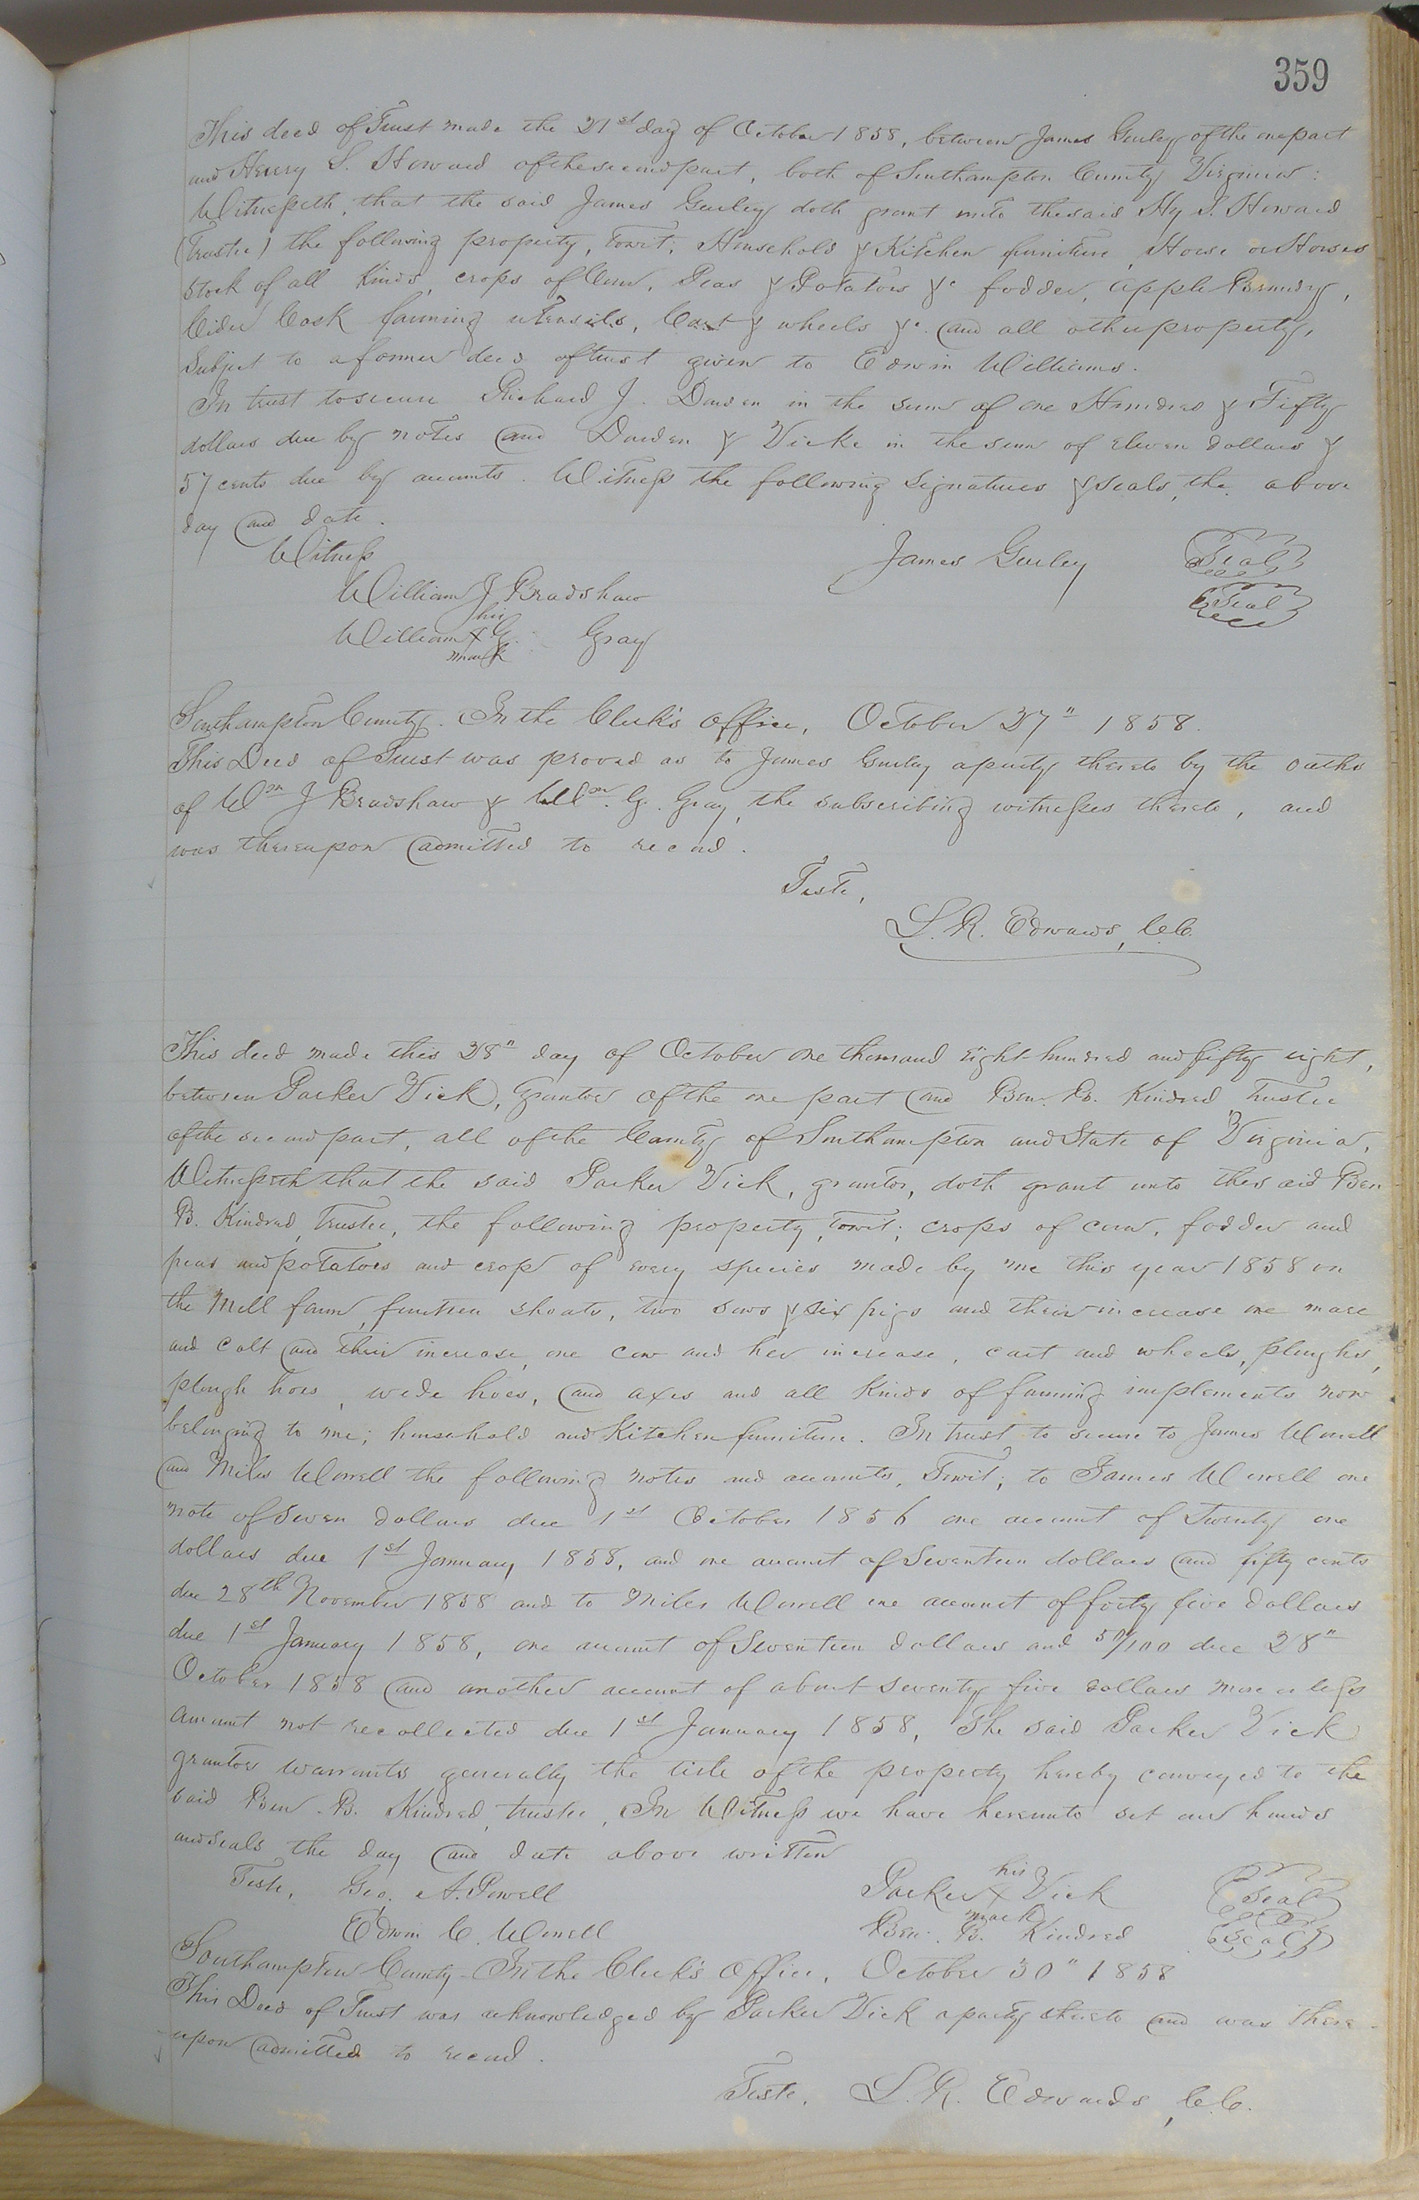 359
This deed of Trust made the 21st day of October 1858, between James Gurley of the one part
and Henry S. Howard of the second part, both of Southampton County Virginia:
Witnesseth, that the said James Gurley doth grant unto the said Hy S. Howard
(Trustee) the following property, towit; Household & Kitchen furniture, House or Houses
Stock of all kinds, crops of Corn, Peas & Potatoes &c fodder, apple Brandy,
Cider Cask farming utensils, Cart & wheels &c. and all other property,
Subject to a former deed of trust given to Edwin Williams.
In trust to secure Richard J. Darden in the sum of one Hundred & Fifty
dollars due by notes and Darden & Vicke in the sum of eleven dollars &
57 cents due by accounts. Witness the following signatures & seals, the above
day and date.
Witness
James Gurley Seal
William J Bradshaw Seal
his
William X G. Gray
mark
Southampton County. In the Clerk's Office, October 27" 1858.
This Deed of Trust was proved as to James Gurley a party thereto by the oaths
of Wm J Bradshaw & Wm. G. Gray, the subscribing witnesses thereto, and
was thereupon admitted to record.
Teste,
L. R. Edwards, C.C.
This deed made this 28" day of October one thousand eight-hundred and fifty eight,
between Parker Vick, grantor of the one part and Ben. B. Kindred Trustee
of the second part, all of the County of Southampton and State of Virginia,
Witnesseth that the said Parker Vick, grantor, doth grant unto the said Ben
B. Kindred, Trustee, the following property, towit; crops of corn, fodder and
peas and potatoes and crop of every species made by me this year 1858 on
the Mill farm, fourteen shoats, two sows & six pigs and their increase one mare
and colt and their increase, one cow and her increase, cart and wheels, ploughs,
plough hoes, wede hoes, and axes and all kinds of farming implements now
belonging to me; household and Kitchen furniture. In trust to secure to James Worrell
and Miles Worrell the following notes and accounts, Towit; to James Worrell one
note of Seven dollars due 1st October 1856 one account of Twenty one
dollars due 1st January 1858, and one account of Seventeen dollars and fifty cents
due 28th November 1858 and to Miles Worrell one account of forty five dollars
due 1st January 1858, one account of Seventeen dollars and 50/100 due 28"
October 1858 and another account of about seventy five dollars more or less
amount not recollected due 1st January 1858, The said Parker Vick
grantor warrants generally the title of the property hereby conveyed to the
said Ben. B. Kindred, trustee, In Witness we have hereunto set our hands
and seals the day and date above written
his
Teste, Geo. A. Powell Parker X Vick Seal
mark
Edwin C. Worrell Ben. B. Kindred Seal
Southampton County - In the Clerk's Office, October 30" 1858
This Deed of Trust was acknowledged by Parker Vick a party thereto and was there-
upon admitted to record.
Teste, L. R. Edwards, C.C.